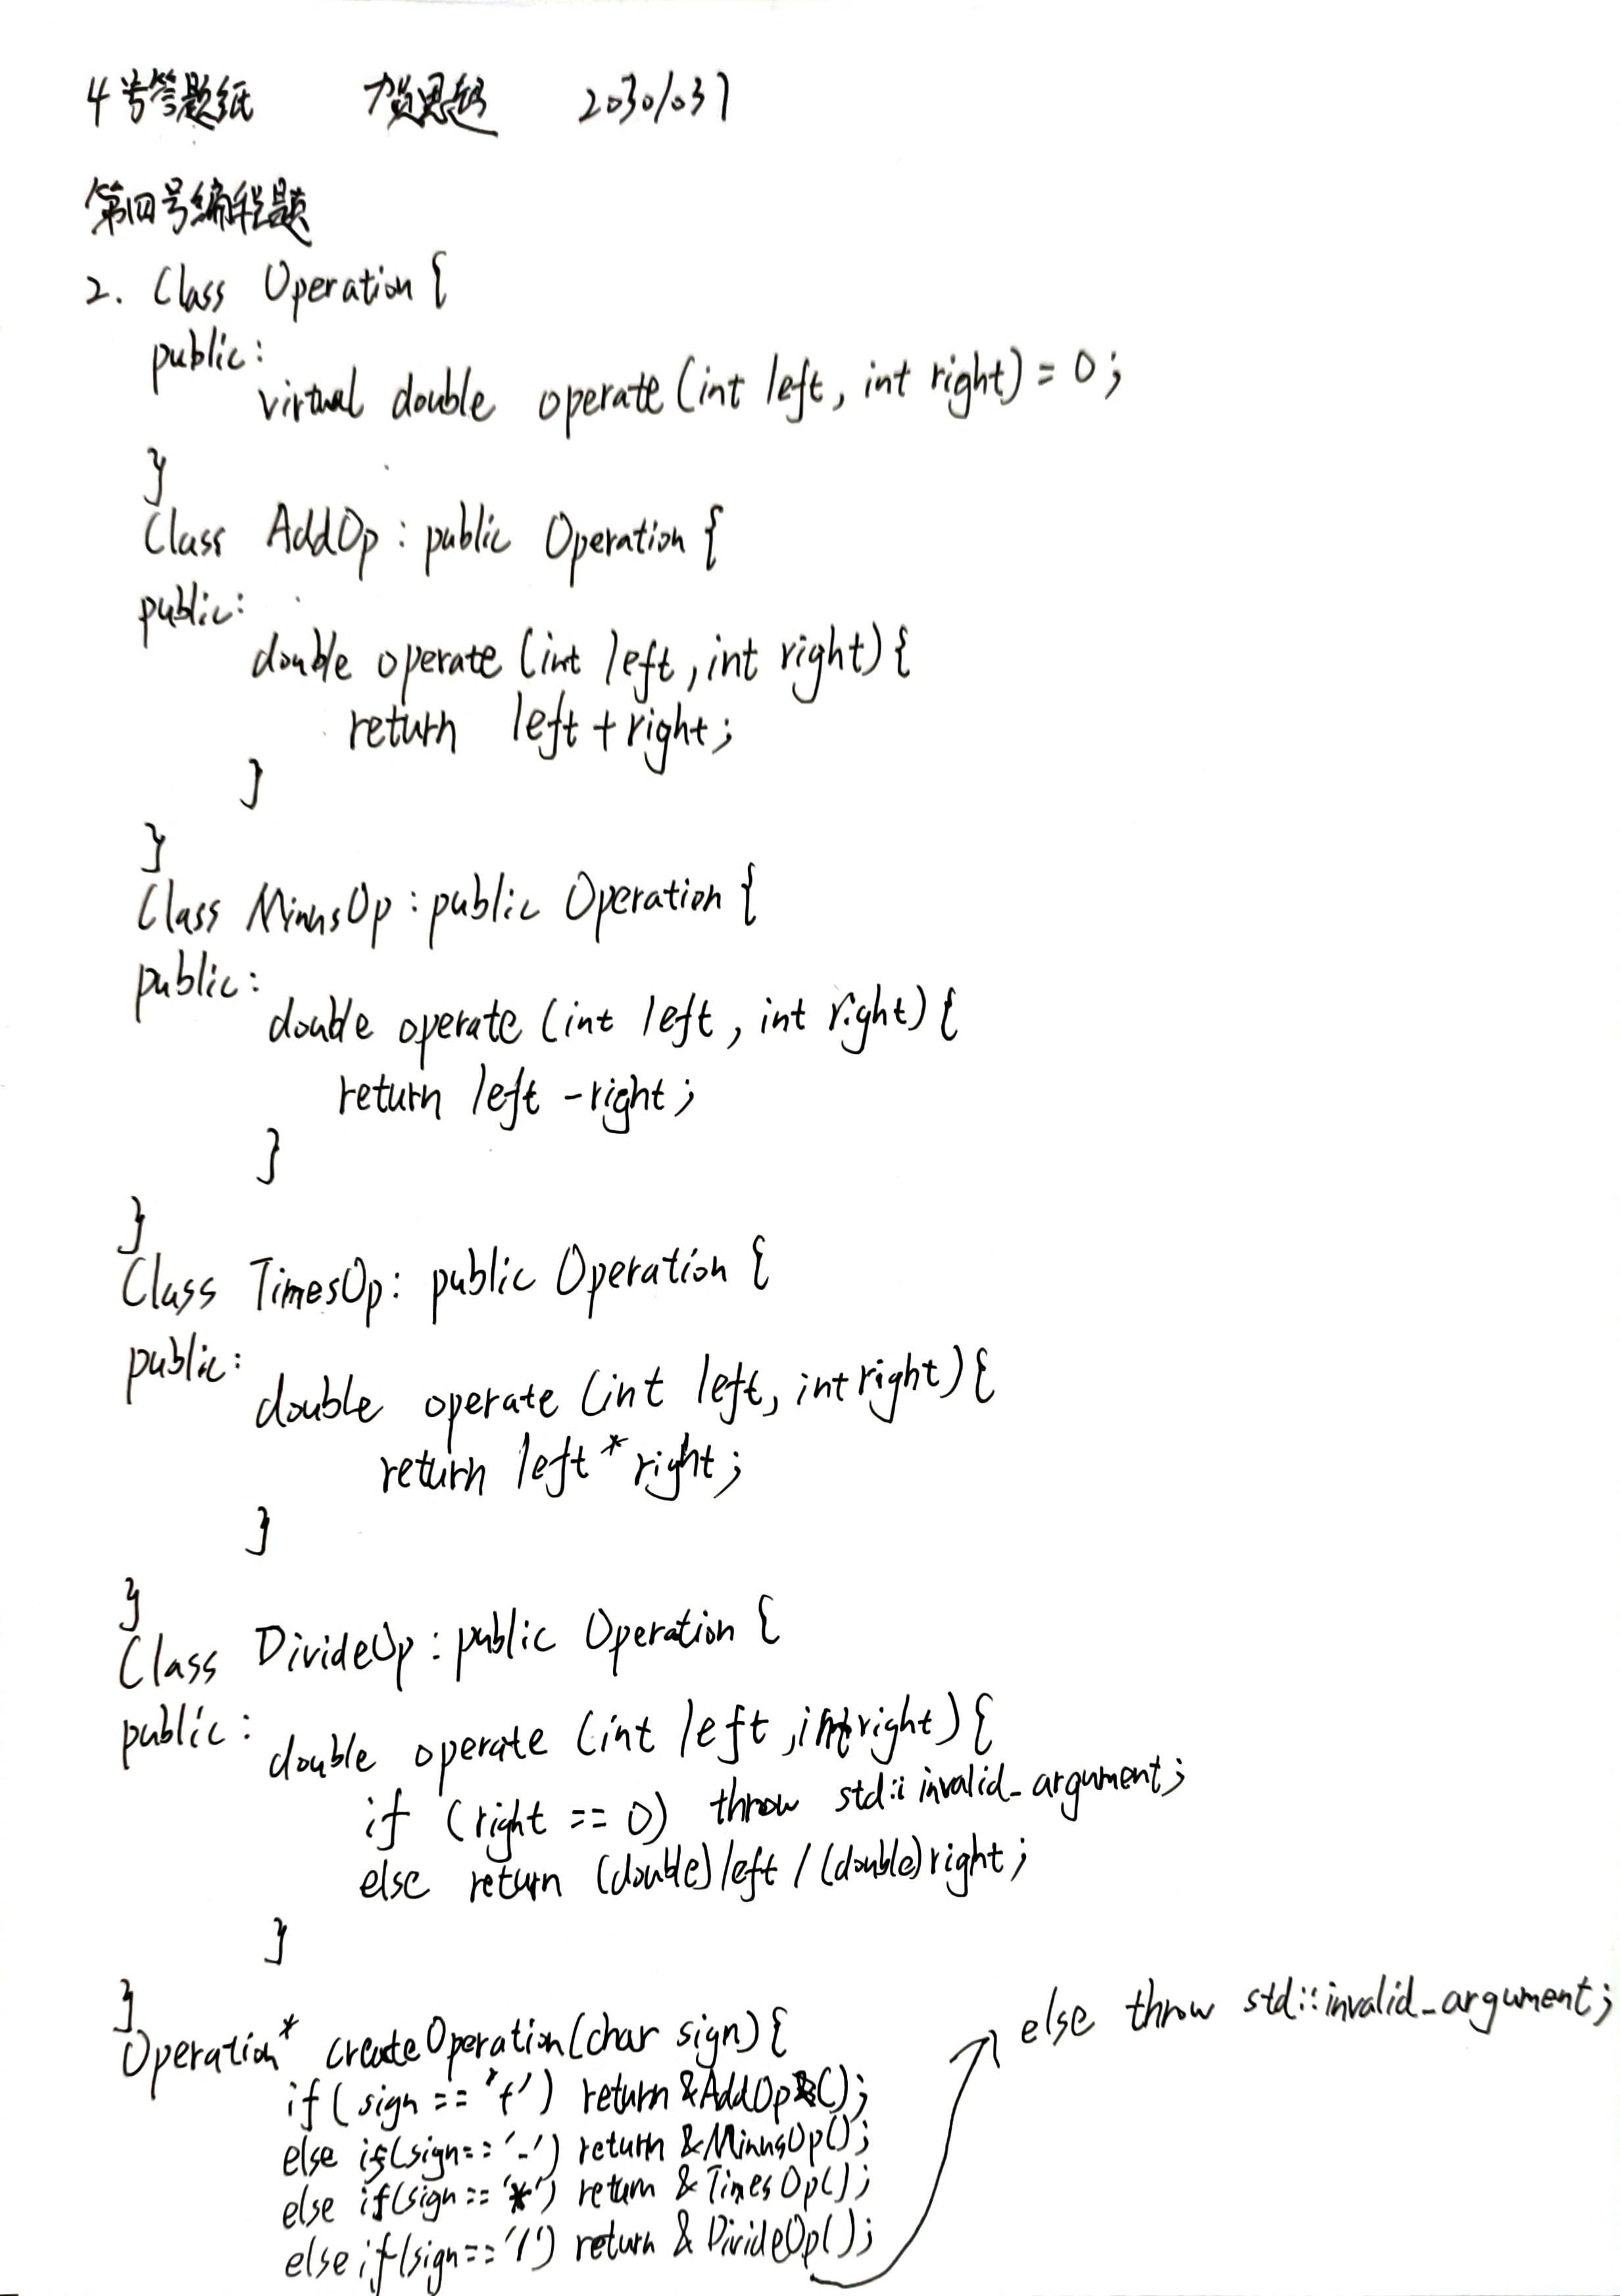 4号答题纸 贺思超 20301037
第四号编程题
2. Class Operation {
public:
virtual double operate (int left, int right) = 0;
}
Class AddOp : public Operation {
public:
double operate (int left, int right) {
return left + right;
}
}
Class MinusOp : public Operation {
public:
double operate (int left, int right) {
return left - right;
}
}
Class TimesOp : public Operation {
public:
double operate (int left, int right) {
return left * right;
}
}
Class DivideOp : public Operation {
public:
double operate (int left, int right) {
if (right == 0) throw std::invalid_argument;
else return (double)left / (double)right;
}
}
Operation* createOperation(char sign) {
if ( sign == '+' ) return &AddOp();
else if(sign == '-') return &MinusOp();
else if(sign == '*') return &TimesOp();
else if(sign == '/') return &DivideOp();
else throw std::invalid_argument;